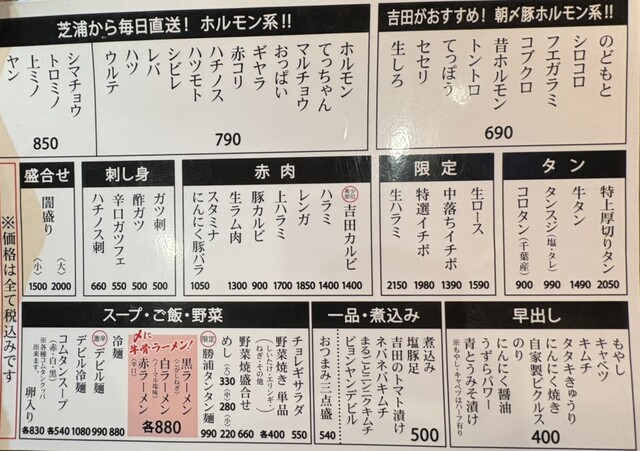 吉田がおすすめ！朝〆豚ホルモン系!!
のどもと
シロコロ
フエガラミ
コブクロ
昔ホルモン
トントロ
てっぽう
セセリ
生しろ
690
芝浦から毎日直送！ホルモン系!!
ホルモン
てっちゃん
マルチョウ
おっぱい
ギヤラ
赤コリ
ハチノス
ハツモト
シビレ
レバ
ハツ
ウルテ
790
シマチョウ
トロミノ
上ミノ
ヤン
850
タン
特上厚切りタン 2050
牛タン 1490
タンスジ(塩・タレ) 990
コロタン(千葉産) 900
限定
生ロース 1590
中落ちイチボ 1390
特選イチボ 1980
生ハラミ 2150
赤肉
吉田カルビ 1400
ハラミ 1400
レンガ 1850
上ハラミ 1700
豚カルビ 900
生ラム肉 1300
スタミナ
にんにく豚バラ 1050
刺し身
ガツ刺 500
酢ガツ 500
辛口ガツフェ 550
ハチノス刺 660
盛合せ
闇盛り
(大) 2000
(小) 1500
早出し
もやし
キャベツ
キムチ
タタキきゅうり
にんにく焼き
自家製ピクルス
のり
にんにく醤油
うずらパワー
青とうみそ漬け
※もやし・キャベツはハーフ有り
400
一品・煮込み
煮込み
塩豚足
吉田のトマト漬け
ネバネバキムチ
まるごとミニキムチ
ピョンヤンデビル
500
おつまみ三点盛 540
スープ・ご飯・野菜
チョレギサラダ 550
野菜焼き 単品
(しいたけ・エリンギ・
ねぎ・その他) 各400
野菜焼盛合せ 660
めし (大)330 (中)280 (小)220
限定
勝浦タンタン麺 990
〆に牛骨ラーメン！
黒ラーメン
(こがしねぎ)
白ラーメン
赤ラーメン
(辛口)
各880
冷麺 880
激辛
デビル麺 990
デビル冷麺 1080
コムタンスープ
(赤・白・黒) 各540
※各種コムタンクッパ
出来ます。
卵入り 各830
※価格は全て税込みです